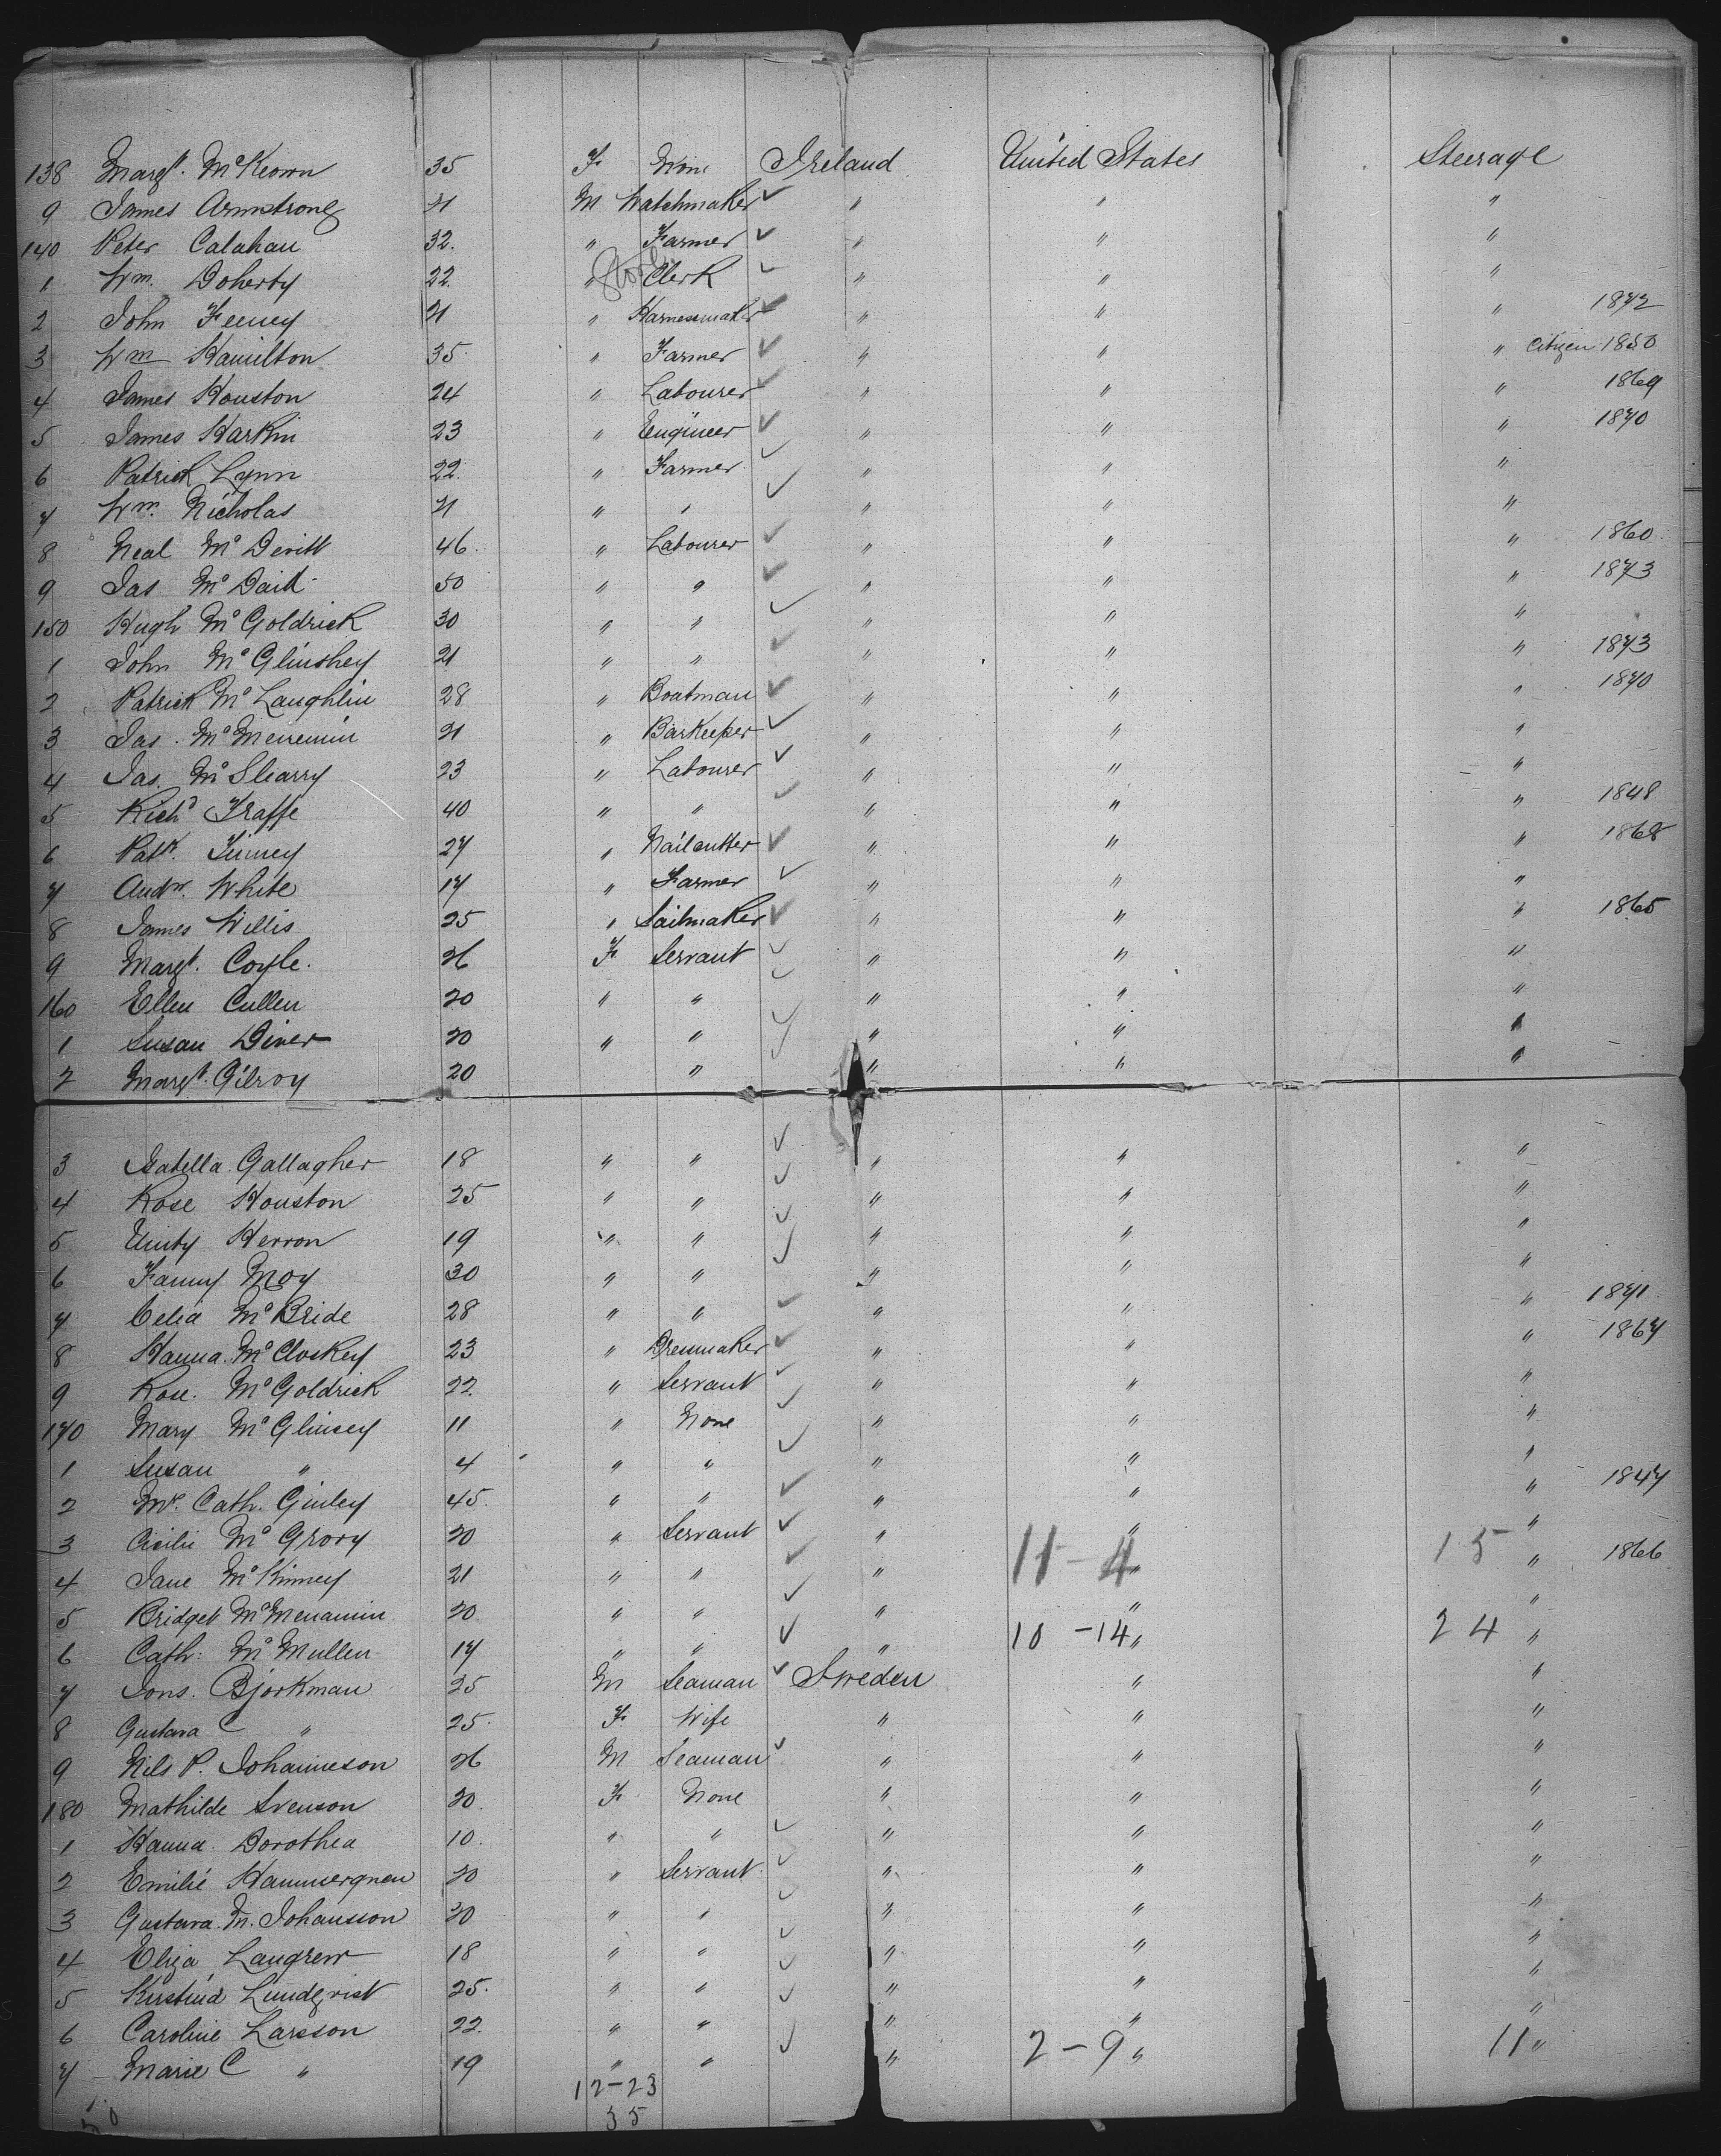 138 Margt. McKeown 35 F None Ireland United States Steerage
9 James Armstrong 21 M Watchmaker " " "
140 Peter Calahan 32. " Farmer " " "
1 Wm. Doherty 22. " Clerk " " "
2 John Feeney 21 " Harnessmaker " " " 1872
3 Wm Hamilton 35. " Farmer " " " Citizen 1850
4 James Houston 24 " Labourer " " " 1869
5 James Harkin 23 " Engineer " " " 1870
6 Patrick Lynn 22. " Farmer " " "
7 Wm. Nicholas 21 " " " " "
8 Neal McDevitt 46. " Labourer " " " 1860
9 Jas McDaid 50 " " " " " 1873
150 Hugh McGoldrick 30 " " " " "
1 John McGlinshey 21 " " " " " 1873
2 Patrick McLaughlin 28 " Boatman " " " 1870
3 Jas. 21 " Barkeeper " " "
4 Jas. 23 " Labourer " " "
5 Richd 40 " " " " " 1848
6 Patk. 27 " Nailcutter " " " 1868
7 Andw. White 17 " Farmer " " "
8 James Willis 25 " Sailmaker " " " 1865
9 Margt. Coyle. 26 F Servant " " "
160 Ellen Cullen 20 " " " " "
1 Susan Diver 20 " " " " "
2 Margt. Gilroy 20 " " " "
3 Isabella Gallagher 18 " " " " "
4 Rose Houston 25 " " " " "
5 Unity Herron 19 " " " " "
6 Fanny Moy 30 " " " " "
7 Celia McBride 28 " " " " " 1871
8 Hanna McCloskey 23 " Dressmaker " " " 1867
9 Rose McGoldrick 22. " Servant " " "
170 Mary McGlinsey 11 " None " " "
1 Susan " 4 " " " " "
2 Cath. Ginley 45. " " " " " 1847
3 McGrory 20 " Servant " " "
4 Jane McKinney 21 " " " 11-4 " 15 " 1866
5 Bridget McMenamin 20 " " " " "
6 Cath: McMullen 17 " " " 10-14 " 24 "
7 Jons. Bjorkman 25 M Seaman Sweden " "
8 Gustava C " 25. F. Wife " " "
9 Nils P. Johanneson 26 M Seaman " " "
180 Mathilde Svenson 20. F None " " "
1 Hanna Dorothea 10. " " " " "
2 Emilie 20 " Servant " " "
3 Gustava M. Johansson 20 " " " " "
4 Eliza 18 " " " " "
5 Kirstina Lundqvist 25. " " " " "
6 Caroline Larsson 22. " " " " "
7 Marie C " 19 " " " 2-9 " 11 "
12-23
50 35